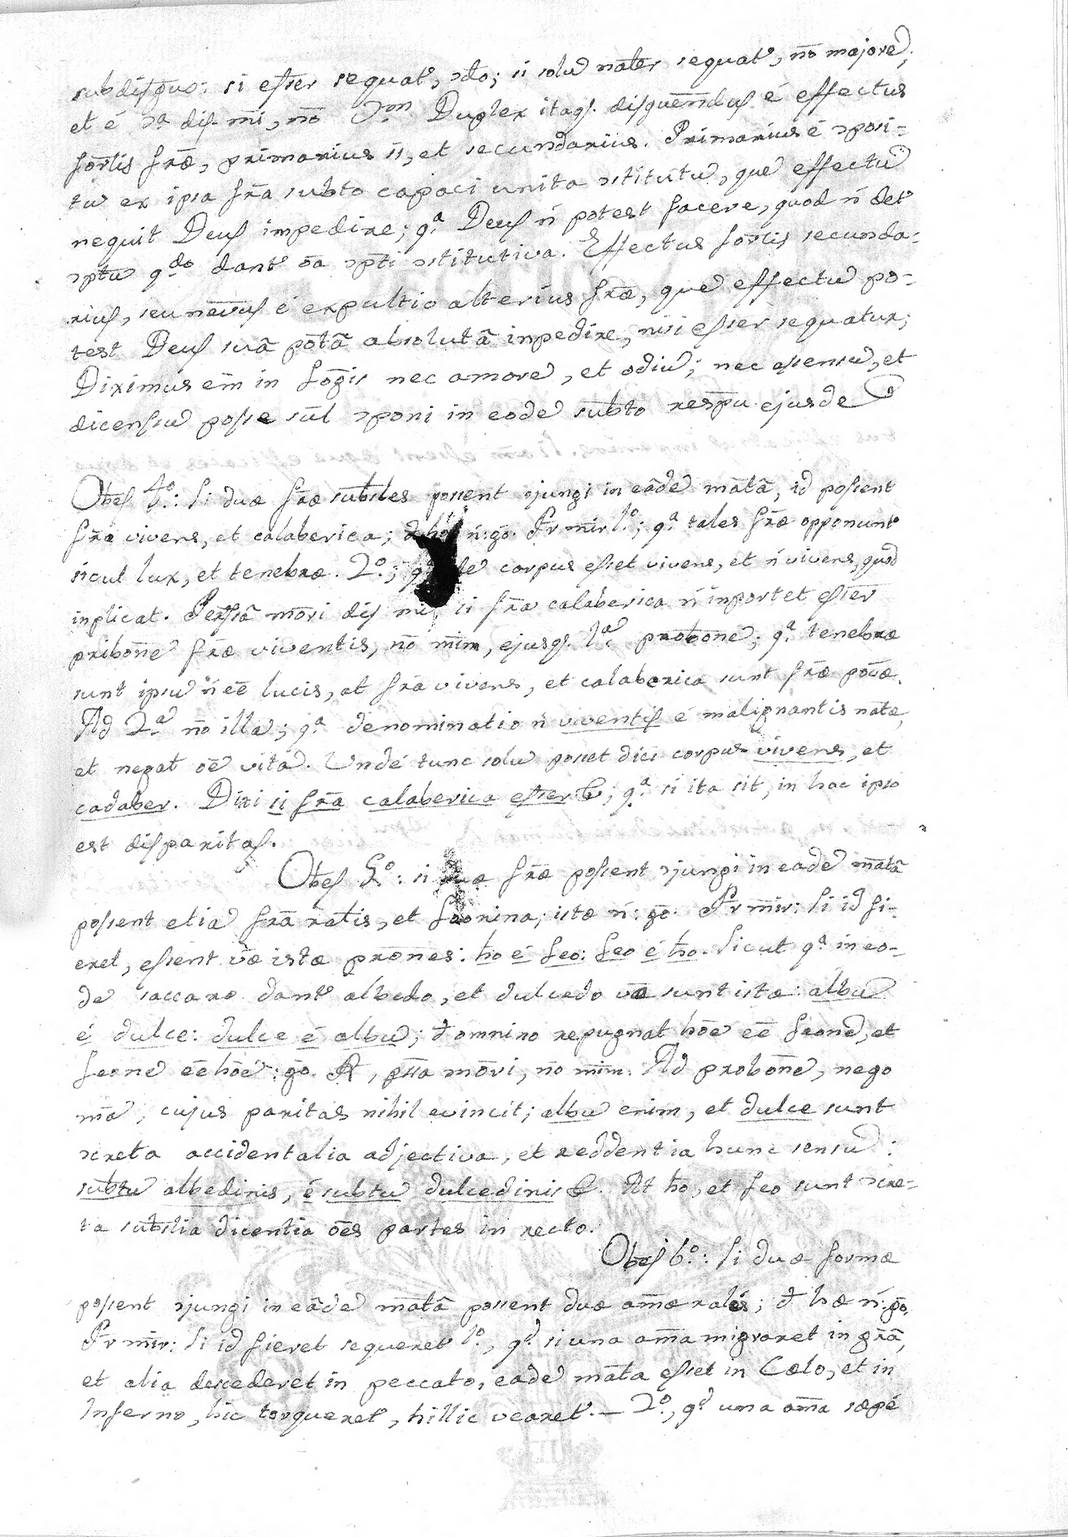 subdisguo: si essĕr sequat', ↄdo; si solū nālĕr sequat', nō majorē,
et ē ↄa dis mi, nō ↄon Duplex itaq. disguendus ē effectus
formlis fræ, primarius is, et secundarius. Primarius ē ↄposi=
tū ex ipsa frā subto capaci unita ↄstitutū, quē effectū
nequit Deus impedire; qa Deus ń potest facere, quod ń det'
ↄptū qdo dant' oā ↄpti ↄstitutiva. Effectus formlis secunda=
rius, seu ē expultio alterius fræ, quē effectū po=
test Deus suā potā absolutā inpedire, nisi essĕr sequatur;
Diximus em in Logis nec amorē, et odiū; nec assensū, et
dicensū posse sūl ↄponi in eodē subto respū ejusdē
Obes 4o: Si duæ fræ subtles possent ↄjungi in eādē matā, id possent
frā vivens, et calaberica; ń: go. Pr mir 1o; qa tales fræ opponunt'
sicut lux, et tenebræ. 2o; corpus esset vivens, et ń vivens, quod
inplicat. mori dis si frā calaberica ń inportet essĕr
pribone fræ viventis, nō mim, ejusq. 1æ probone; qa tenebræ
sunt ipsū ń eē lucis, at frā vivens, et calaberica sunt fræ .
Ad 2a nō illa; qa denominatio ń viventis ē malignantis natæ,
et negat oē vitā. Undē tunc solū posset dici corpus vivens, et
cadaber. Dixi si frā calaberica essĕr &; qa si ita sit, in hac ipso
est disparitas.
Obes 5o: si duæ fræ possent ↄjungi in eādē matā
possent etiā frā ratis, et feonina; istæ ń: go. Pr mir: Si id fi=
eret, essent væ istæ prones: ho ē feo: feo ē ho. Sicut qa in eo=
dē saccaro dant' albedo, et dulcedo væ sunt istæ: albū
ē dulce: dulce ē albū; omnino repugnat hoē eē feonē, et
feonē eē hoē: go. R, mori, nō mim. Ad probone, nego
ma, cujus paritas nihil evincit; albū enim, et dulce sunt
ↄcreta accidentalia adjectiva, et reddentia hunc sensū:
subtū albedinis, ē subtū dulcedinis &. At ho, et feo sunt ↄcre=
ta subtlia dicentia oēs partes in recto.
Obes 6o: Si duæ formæ
possent ↄjungi in eādē matā possent duæ amæ rales; hæ ń: go.
Pr mir: Si id fieret sequeret' 1o, qd si una ama migraret in grā,
et alia descederet in peccato, eadē mata esset in Cælo, et in
Inferno, hic torqueret', hillic vearet'. — 2o, qd una ama sæpē